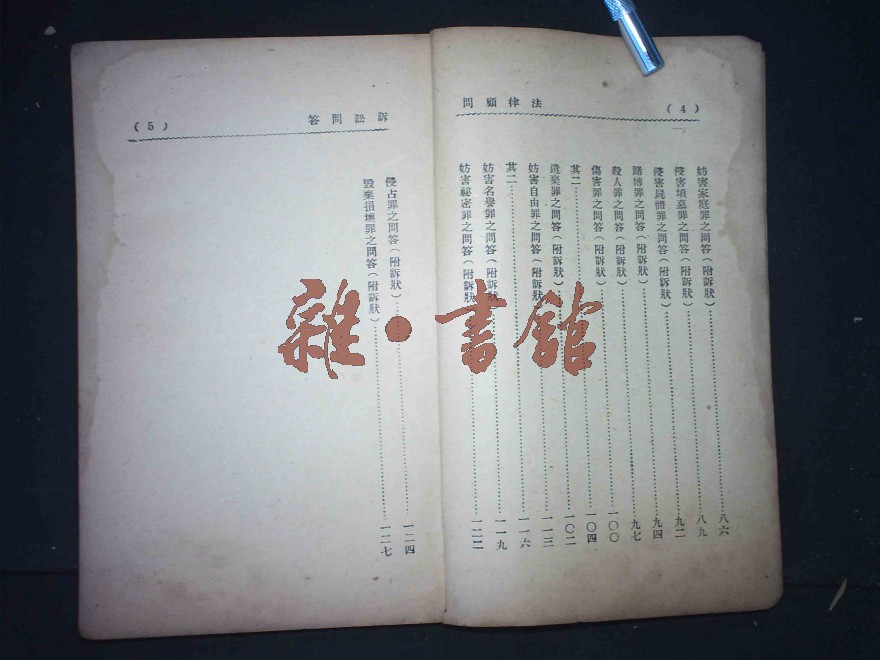 法律顧問 (4)
妨害家庭罪之問答(附訴狀)……八六
侵害墳墓罪之問答(附訴狀)……八九
侵害屍體罪之問答(附訴狀)……九二
賭博罪之問答(附訴狀)……九四
殺人罪之問答(附訴狀)……九七
傷害罪之問答(附訴狀)……一〇〇
其二……一〇四
遺棄罪之問答(附訴狀)……一〇二
妨害自由罪之問答(附訴狀)……一一三
其二……一一六
妨害名譽罪之問答(附訴狀)……一一九
妨害祕密罪之問答(附訴狀)……一二二
訴訟問答 (5)
侵占罪之問答(附訴狀)……一二四
毀棄損壞罪之問答(附訴狀)……一二七
雜·書館